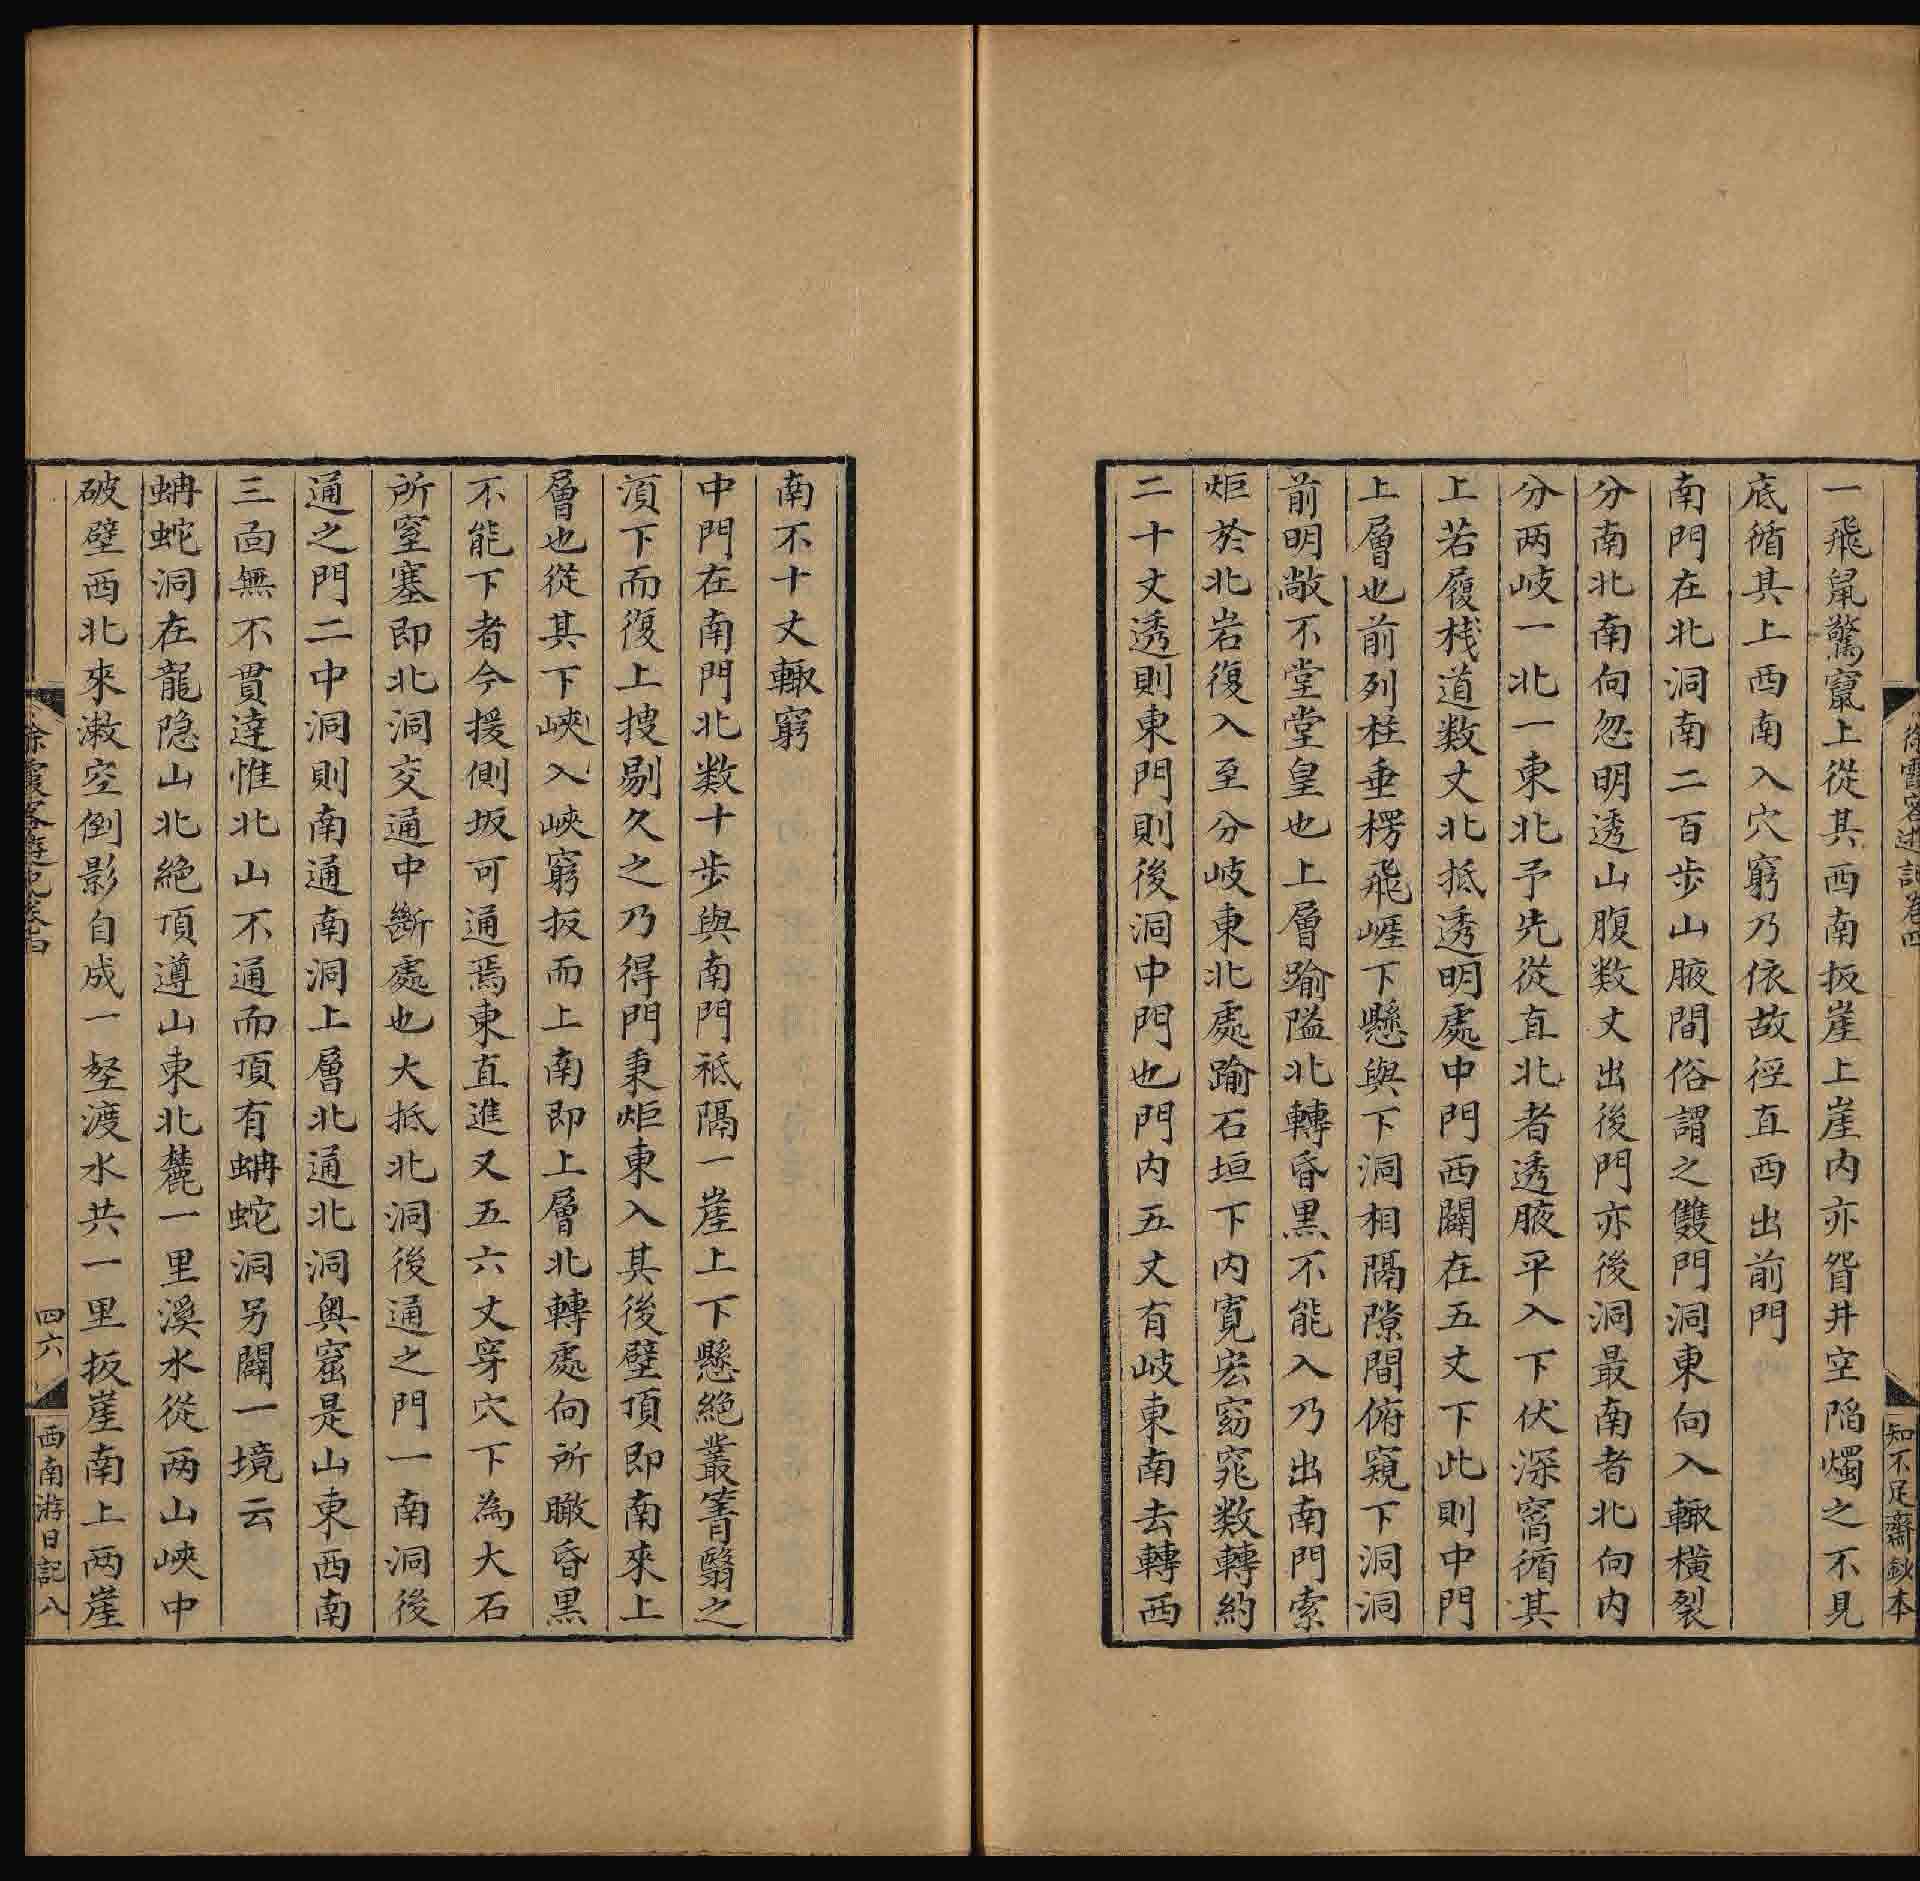 徐霞客遊記卷四
知不足齋鈔本
一飛鼠驚竄上從其西南扳崖上崖内亦眢井空陷燭之不見
底循其上西南入穴窮乃依故徑直西出前門
南門在北洞南二百步山腋間俗謂之雙門洞東向入輙横裂
分南北南向忽明透山腹数丈出後門亦後洞最南者北向内
分两岐一北一東北予先從直北者透腋平入下伏深窅循其
上若履栈道数丈北抵透明處中門西闢在五丈下此則中門
上層也前列柱垂楞飛崕下懸與下洞相隔隙間俯窺下洞洞
前明敞不堂堂皇也上層踰隘北轉昏黒不能入乃出南門索
炬於北岩復入至分岐東北處踰石垣下内寛宏窈窕数轉約
二十丈透則東門則後洞中門也門内五丈有岐東南去轉西
南不十丈輙窮
中門在南門北数十步與南門祗隔一崖上下懸絶叢箐翳之
湏下而復上捜剔久之乃得門秉炬東入其後壁頂即南來上
層也從其下峽入峽窮扳而上南即上層北轉處向所瞰昏黒
不能下者今援側坂可通焉東直進又五六丈穿穴下為大石
所窒塞即北洞交通中斷處也大抵北洞後通之門一南洞後
通之門二中洞則南通南洞上層北通北洞奥窟是山東西南
三面無不貫達惟北山不通而頂有蚺蛇洞另闢一境云
蚺蛇洞在龍隐山北絶頂遵山東北麓一里溪水從两山峽中
破壁西北來漱空倒影自成一壑渡水共一里扳崖南上两崖
徐霞客遊記卷四
四六
西南游日記八